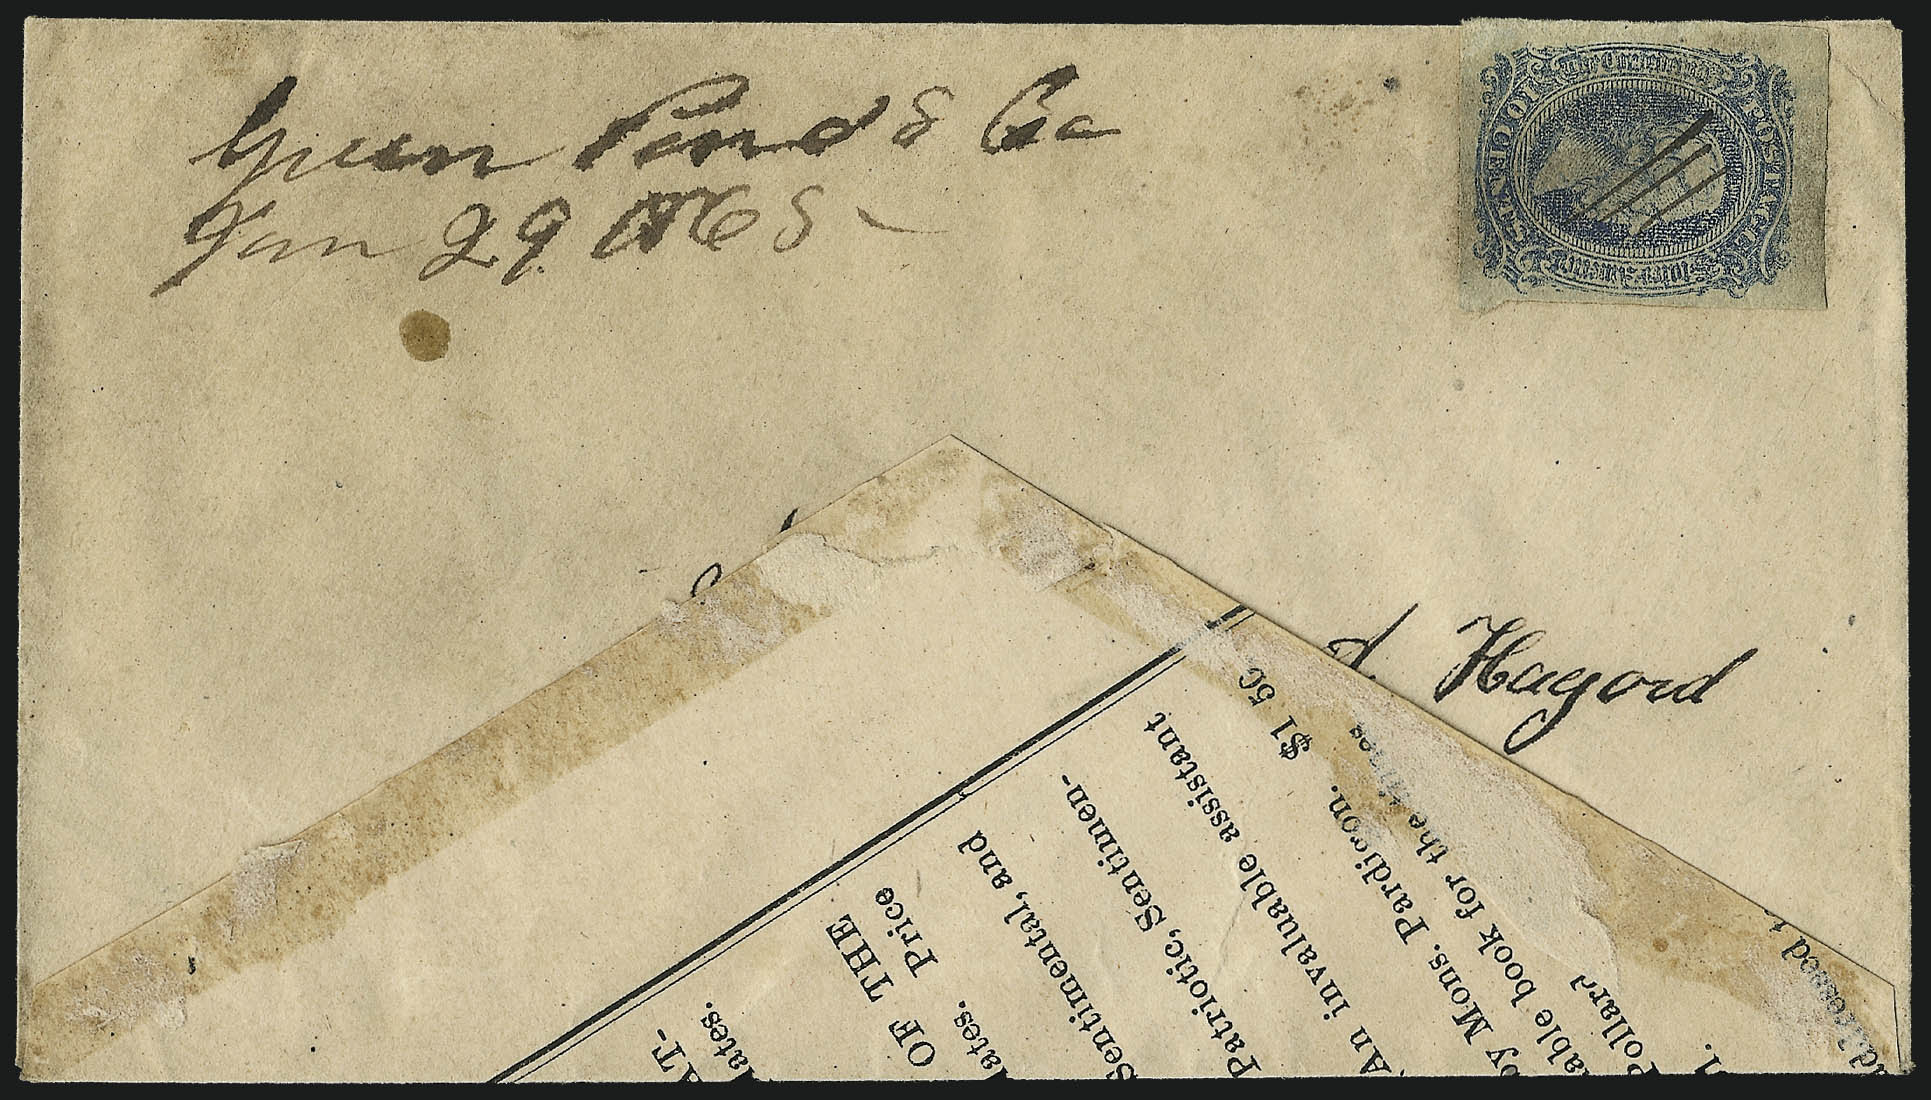 Green Pond S Ca
Jan 29 1865
The Confederate
POSTAGE
TEN CENTS
States America
d. Hagood
AT-
lates.
OF THE
ates. Price
Sentimental, and
Patriotic, Sentimen-
An invaluable assistant
$1 50
by Mons. Pardigon.
able book for the times
Pollard
dressed t